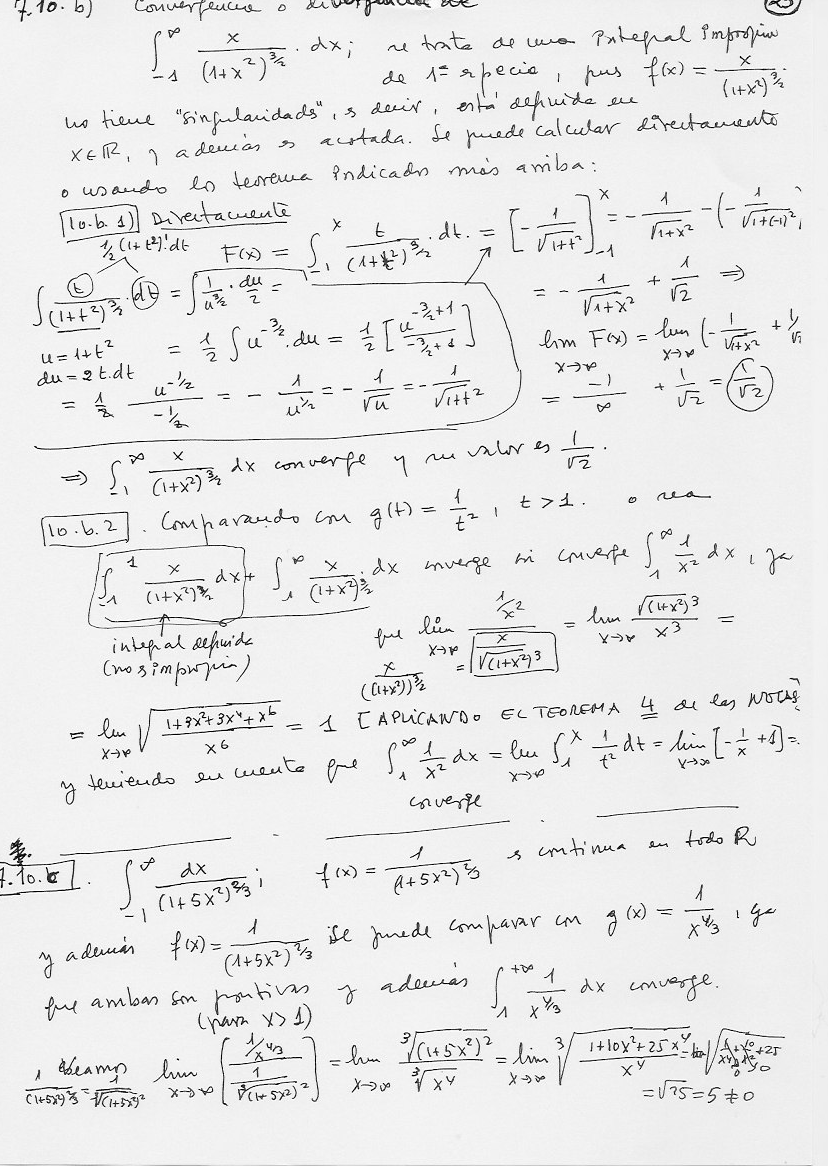 7.10. b) Convergencia o divergencia de (23)
∫_{-1}^{∞} x/(1+x²)^{3/2} · dx; se trata de una integral impropia
de 1ª especie, pues f(x) = x/(1+x²)^{3/2}
no tiene "singularidads", es decir, está definida en
x∈ℝ, y además es acotada. Se puede calcular directamente
o usando los teorema indicados más arriba:
10.b.1) Directamente
1/2 (1+t²)' dt
F(x) = ∫_{-1}^{x} t/(1+t²)^{3/2} · dt = [-1/√(1+t²)]_{-1}^{x} = -1/√(1+x²) - (-1/√(1+(-1)²)
∫ t/(1+t²)^{3/2} · dt = ∫ 1/u^{3/2} · du/2 =
= -1/√(1+x²) + 1/√2 ⇒
u = 1+t²
du = 2t·dt
= 1/2 ∫ u^{-3/2} · du = 1/2 [u^{-3/2+1}/(-3/2+1)]
lim_{x→∞} F(x) = lim_{x→∞} (-1/√(1+x²) + 1/√2
= 1/2 u^{-1/2}/(-1/2) = -1/u^{1/2} = -1/√u = -1/√(1+t²)
= -1/∞ + 1/√2 = 1/√2
⇒ ∫_{-1}^{∞} x/(1+x²)^{3/2} dx converge y su valor es 1/√2.
10.b.2. Comparando con g(t) = 1/t², t>1. o sea
∫_{-1}^{1} x/(1+x²)^{3/2} dx + ∫_{1}^{∞} x/(1+x²)^{3/2} dx converge si converge ∫_{1}^{∞} 1/x² dx, ya
integral definida
(no es impropia)
que lim_{x→∞} (1/x²)/(x/√(1+x²)³) = lim_{x→∞} √(1+x²)³/x³ =
x/((1+x²))^{3/2} =
= lim_{x→∞} √((1+3x²+3x⁴+x⁶)/x⁶) = 1 [APLICANDO EL TEOREMA 4 de las NOTAS]
y teniendo en cuenta que ∫_{1}^{∞} 1/x² dx = lim_{x→∞} ∫_{1}^{x} 1/t² dt = lim_{x→∞} [-1/x + 1] =
converge
7.10.c. ∫_{-1}^{∞} dx/(1+5x²)^{2/3}; f(x) = 1/(1+5x²)^{2/3} es continua en todo R
y además f(x) = 1/(1+5x²)^{2/3} se puede comparar con g(x) = 1/x^{4/3}, ya
que ambas son positivas y además ∫_{1}^{+∞} 1/x^{4/3} dx converge.
(para x>1)
Veamos lim_{x→∞} [(1/x^{4/3})/(1/∛(1+5x²)²)] = lim_{x→∞} ∛(1+5x²)²/∛x⁴ = lim_{x→∞} ∛((1+10x²+25x⁴)/x⁴) = lim ∛(1/x⁴+10/x²+25
1/(1+5x²)^{2/3} = 1/∛(1+5x²)²
= √25 = 5 ≠ 0